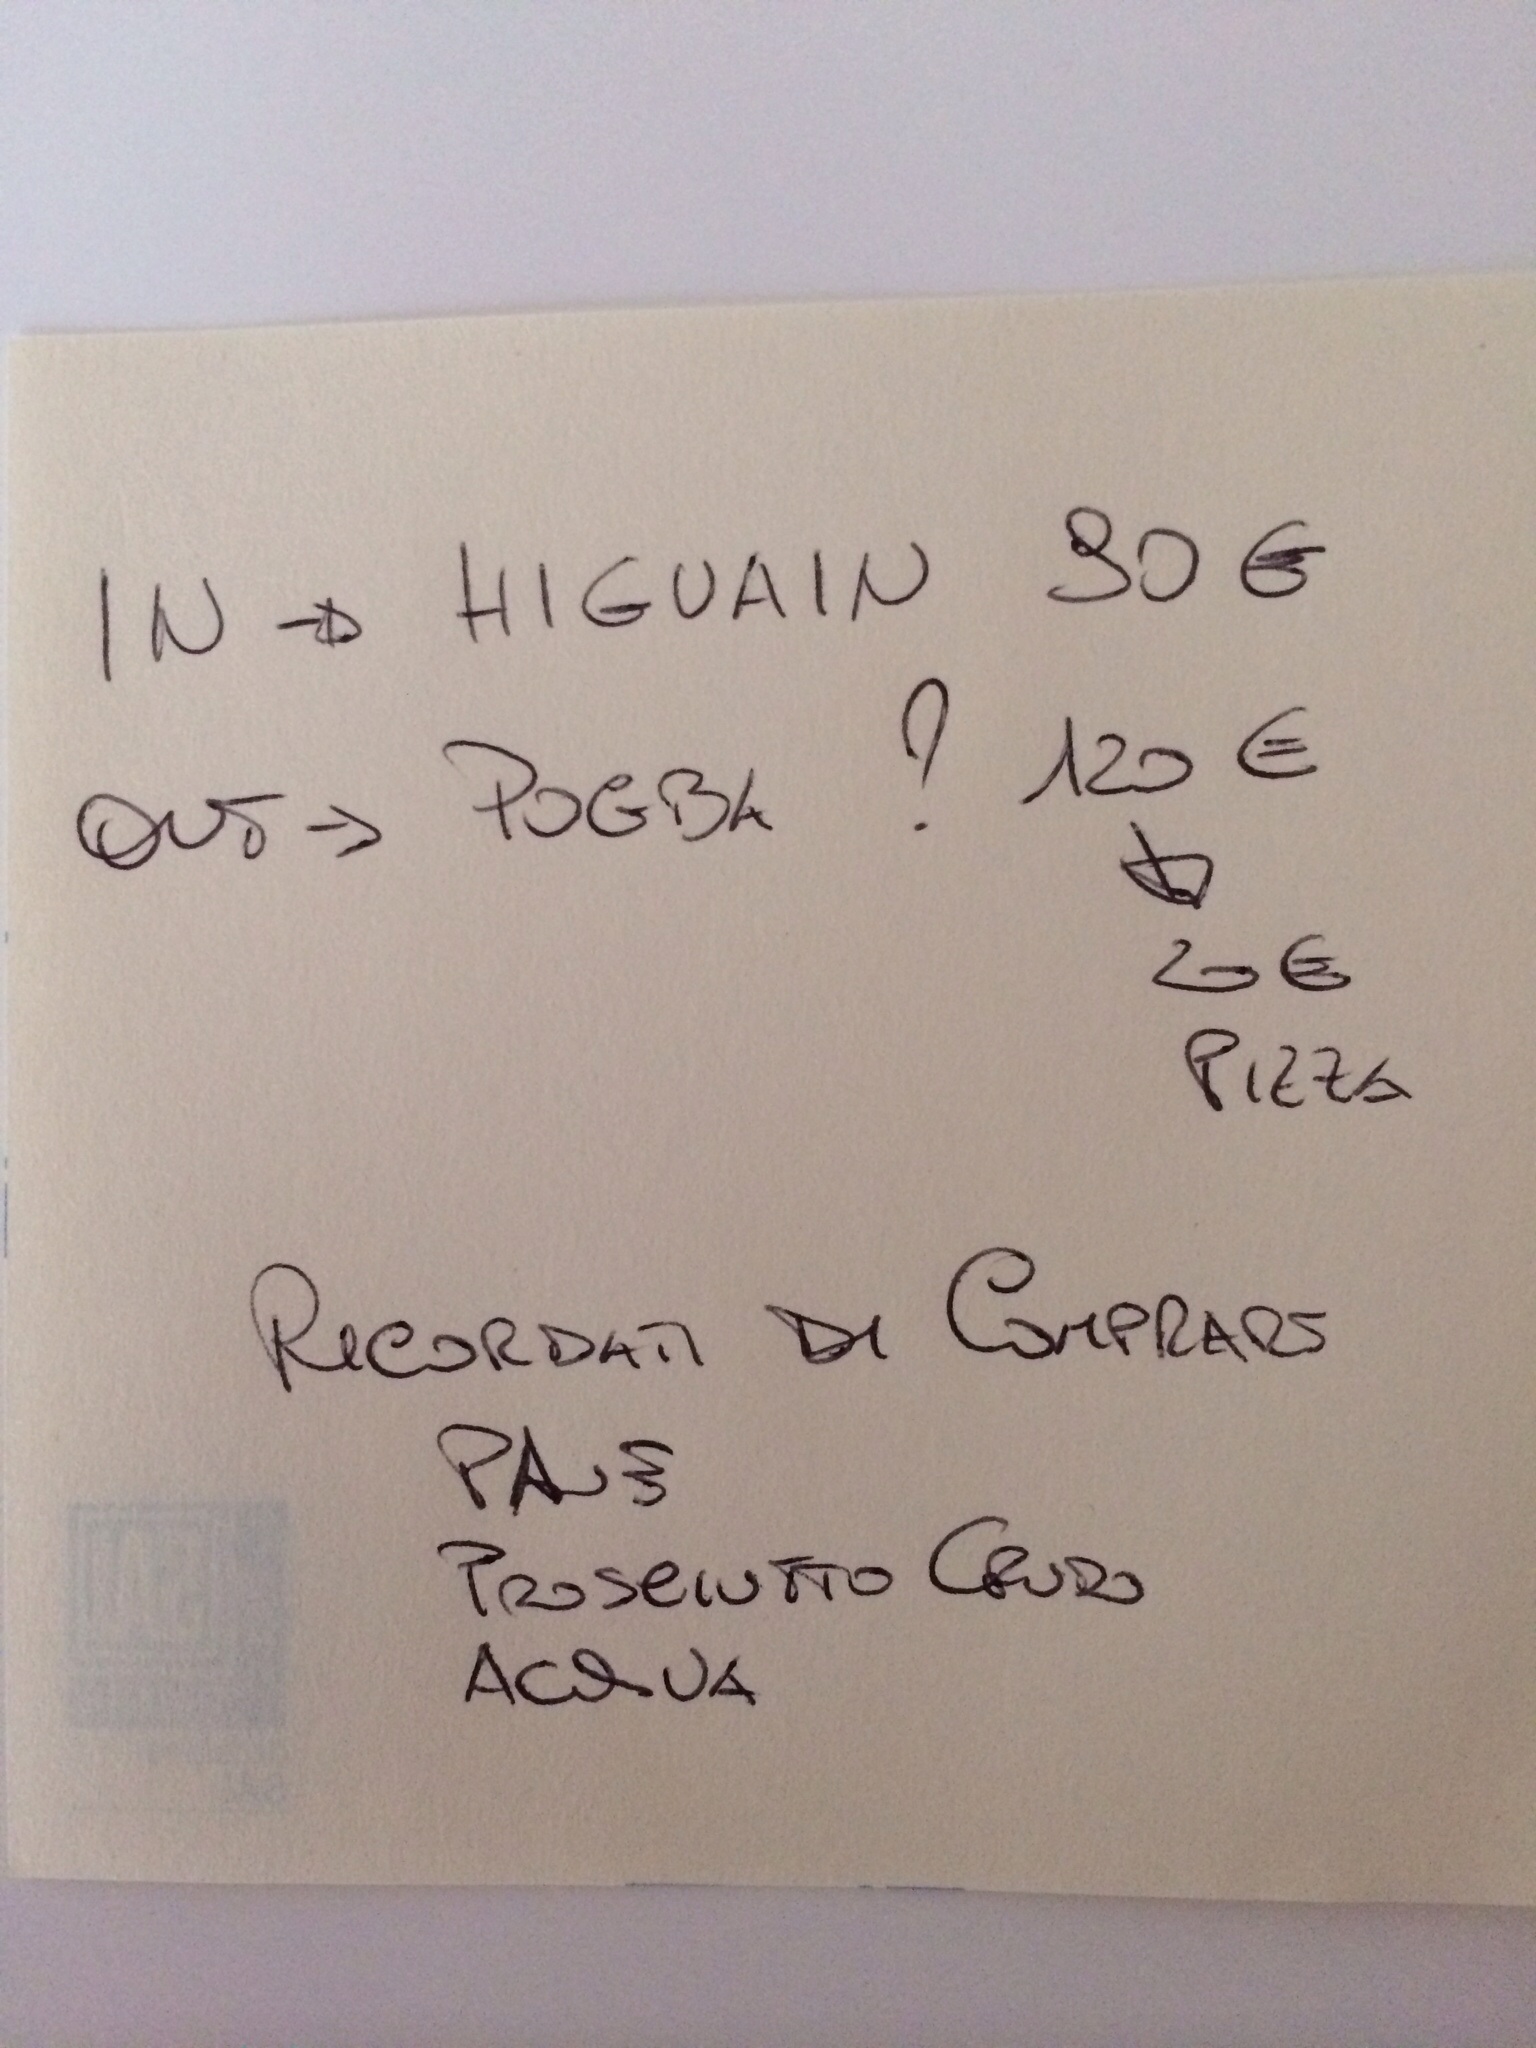 IN → HIGUAIN 90 €
OUT → POGBA ? 120 €
↓
20 €
PIZZA
RICORDATI DI COMPRARE
PANE
PROSCIUTTO CRUDO
ACQUA